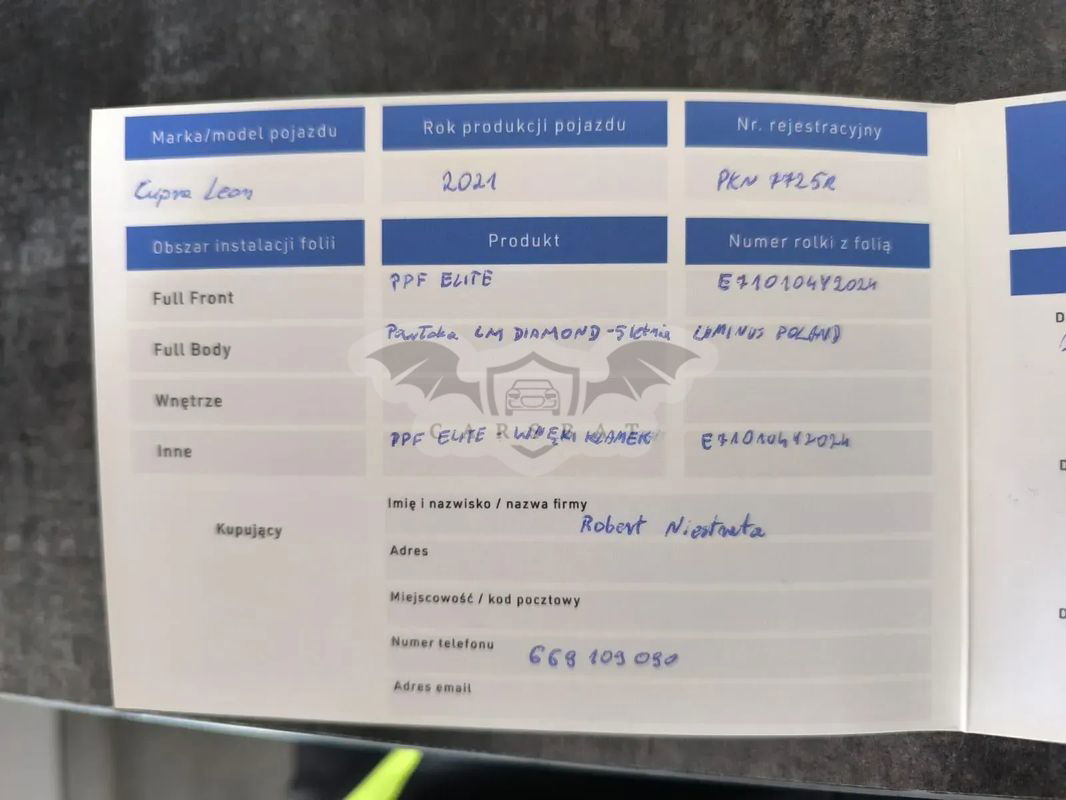 Marka/model pojazdu Rok produkcji pojazdu Nr. rejestracyjny
Cupra Leon 2021 PKN 7725R
Obszar instalacji folii Produkt Numer rolki z folią
Full Front PPF ELITE E710104Y2024
Full Body Powłoka LM DIAMOND - 5 letnia LUMINUS POLAND
Wnętrze
CARSRAT
Inne PPF ELITE - WNĘKI KLAMEK E710104Y2024
Kupujący
Imię i nazwisko / nazwa firmy
Robert
Adres
Miejscowość / kod pocztowy
Numer telefonu 669 109 090
Adres email